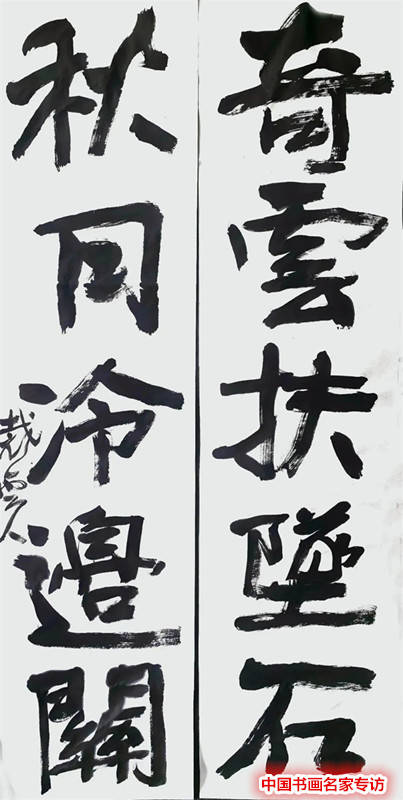 奇雲扶墜石
秋月冷邊關
中国书画名家专访